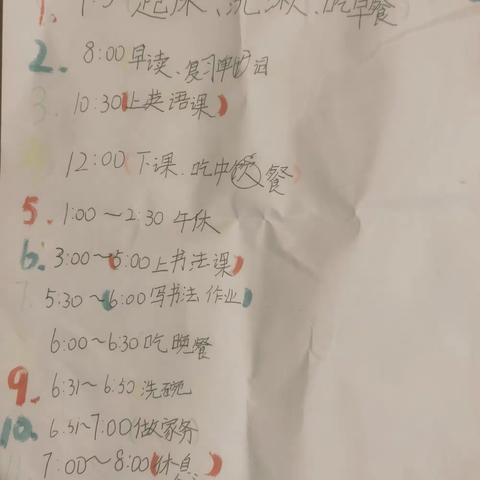 1. 起床、洗漱、吃早餐
2. 8:00早读、复习单词
3. 10:30(上英语课)
12:00(下课、吃中餐)
5. 1:00~2:30 午休
6. 3:00~(5:00上书法课)
7. 5:30~(6:00写书法作业)
6:00~6:30吃晚餐
9. 6:31~6:50洗碗
10. 6:51~7:00做家务
11 7:00~8:00(休息)